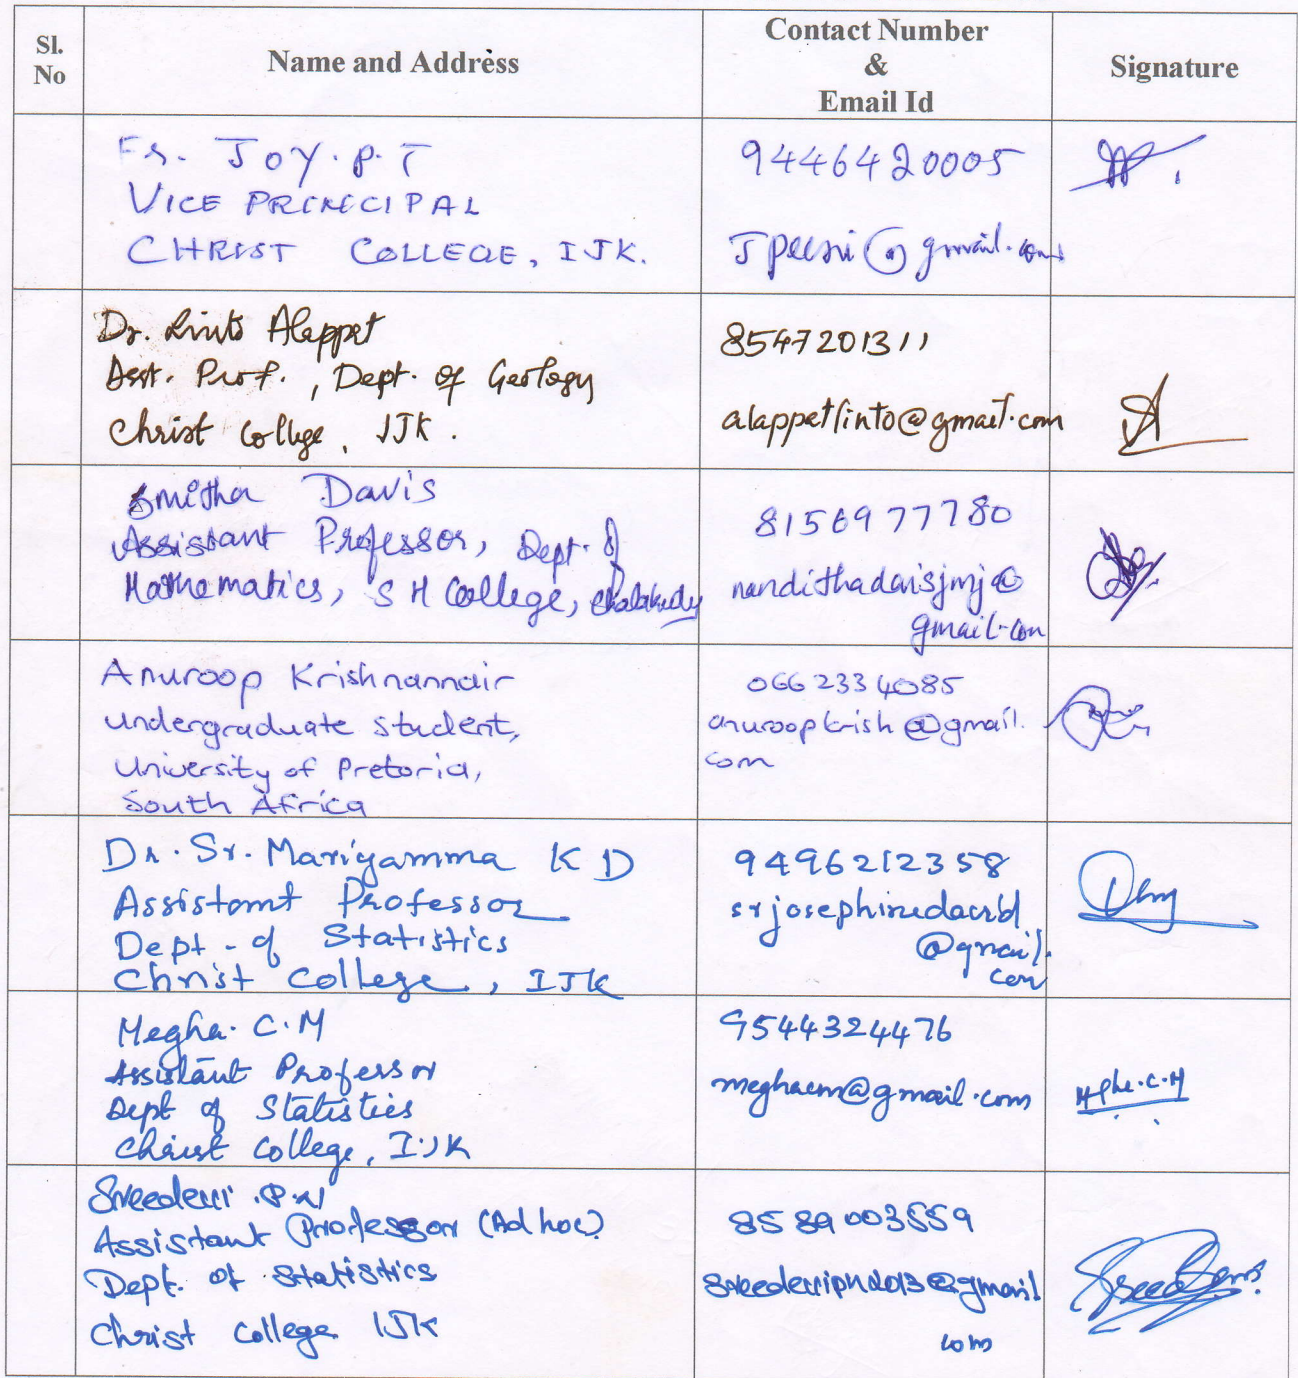 Sl. No
Name and Address
Contact Number
&
Email Id
Signature
Fr. JOY. P. T
VICE PRINCIPAL
CHRIST COLLEGE, IJK.
9446420005
@gmail.com
Dr. Linto Alappat
Asst. Prof., Dept. of Geology
Christ College, IJK.
8547201311
alappatlinto@gmail.com
Smitha Davis
Assistant Professor, Dept. of
Mathematics, S H College, Chalakudy
8156977780
nandithadavisjmj@
gmail.com
Anuroop Krishnannair
undergraduate student,
University of Pretoria,
South Africa
0662334085
anuroopkrish@gmail.
com
Dr. Sr. Mariyamma K D
Assistant Professor
Dept. of Statistics
Christ College, IJK
9496212358
srjosephinedavid
@gmail.
com
Megha. C. M
Assistant Professor
Dept of Statistics
Christ College, IJK
9544324476
meghacm@gmail.com
Sreedevi .P.N
Assistant Professor (Ad hoc)
Dept. of Statistics
Christ College IJK
8589003559
sreedevipn2013@gmail
com